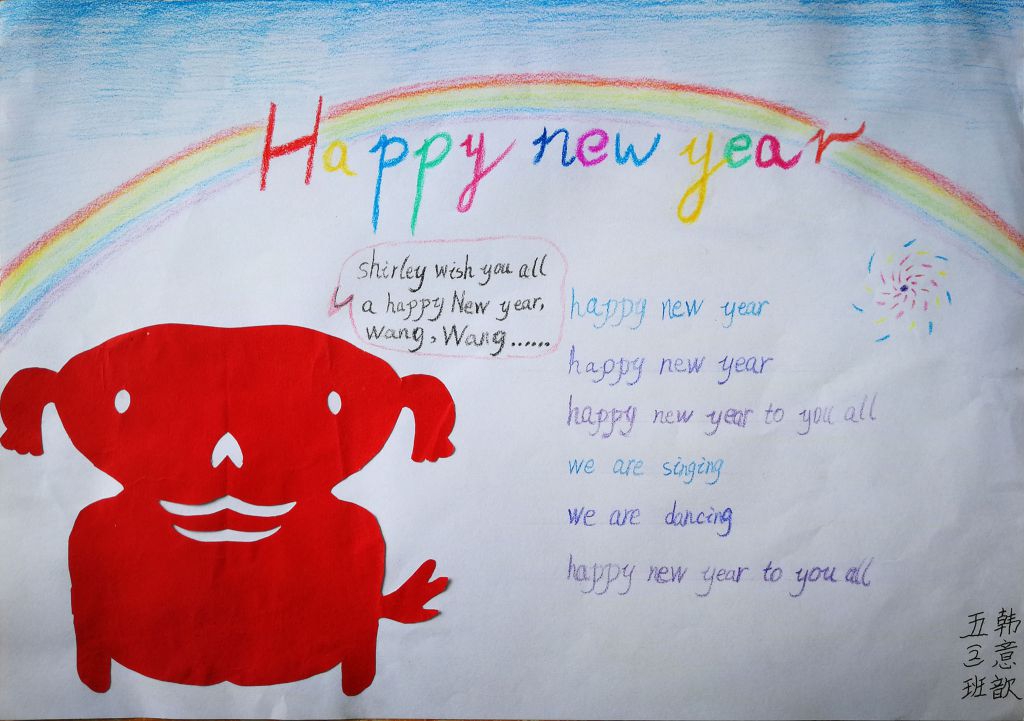 Happy new year
shirley wish you all
a happy New year,
wang, Wang......
happy new year
happy new year
happy new year to you all
we are singing
we are dancing
happy new year to you all
韩意歆
五三班